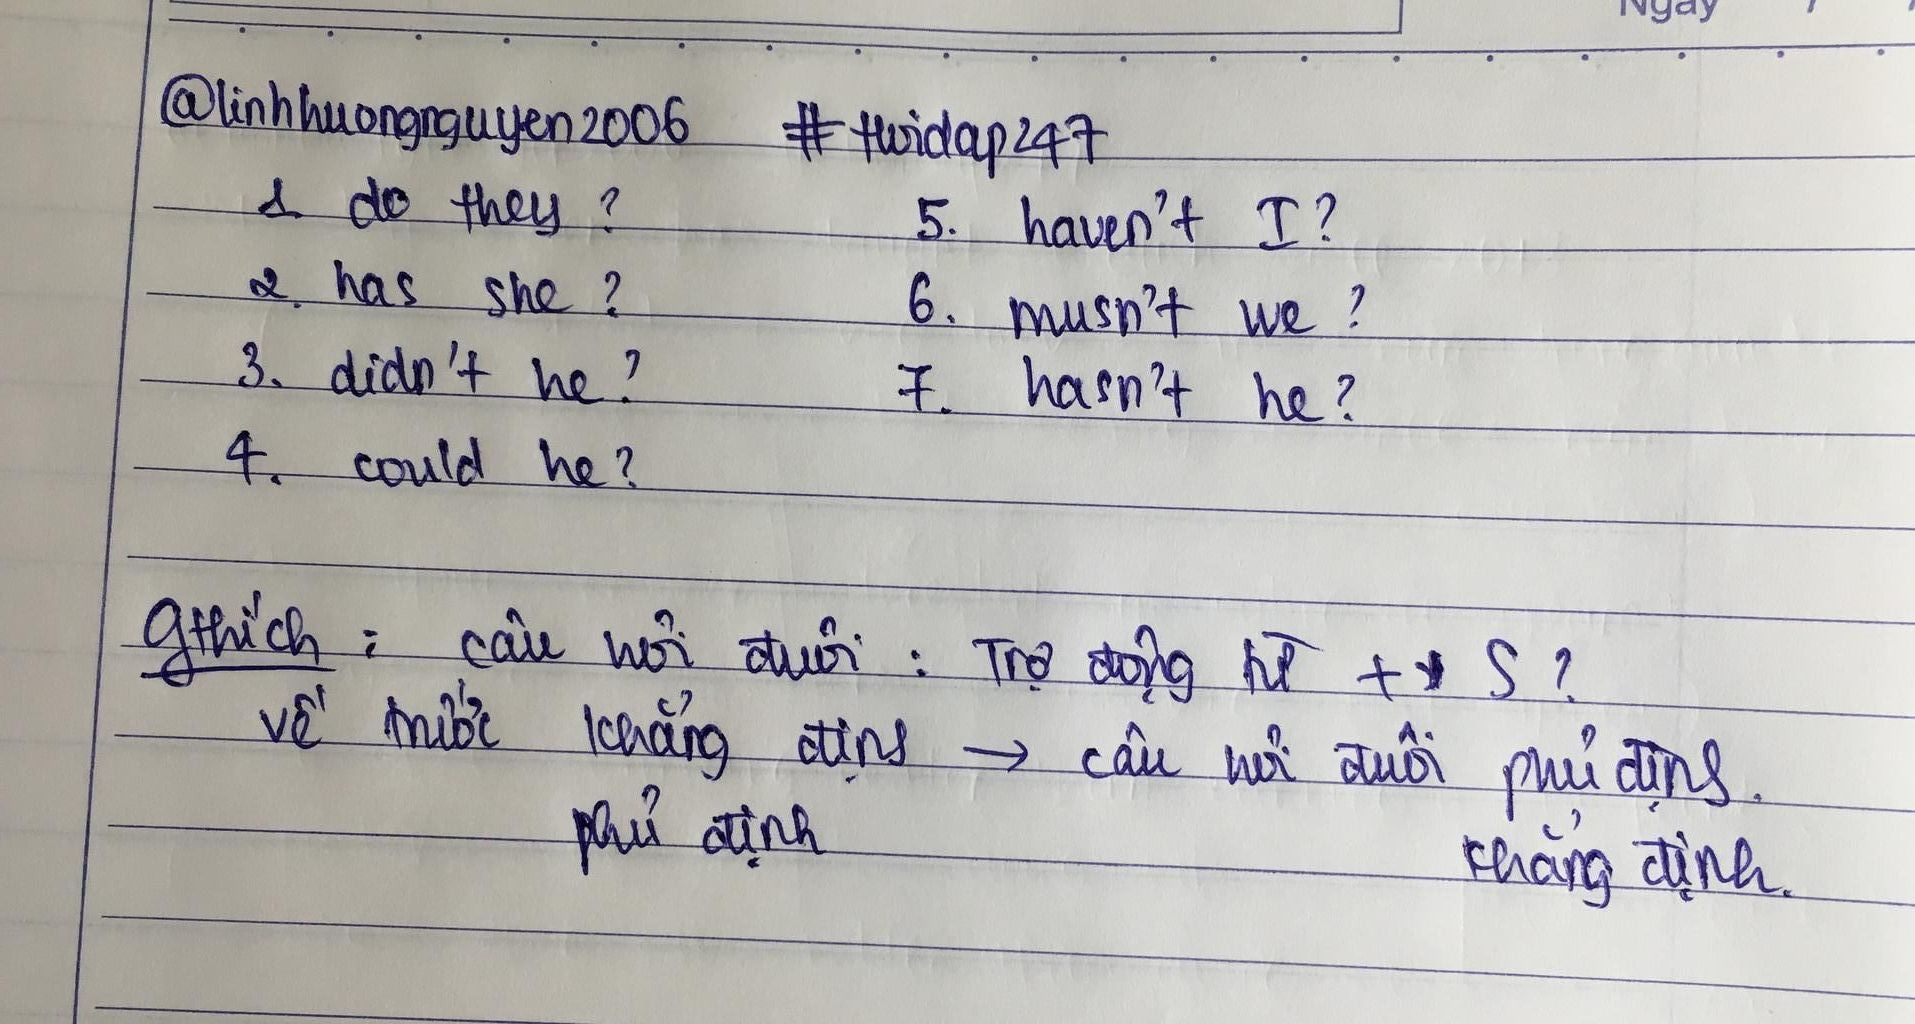 Ngày / /
@linhhuongnguyen2006 #hoidap247
1. do they ?
2. has she ?
3. didn't he ?
4. could he ?
5. haven't I ?
6. musn't we ?
7. hasn't he ?
Gthích : câu hỏi đuôi : Trợ động từ + S ?
vế trước khẳng định → câu hỏi đuôi phủ định.
phủ định khẳng định.